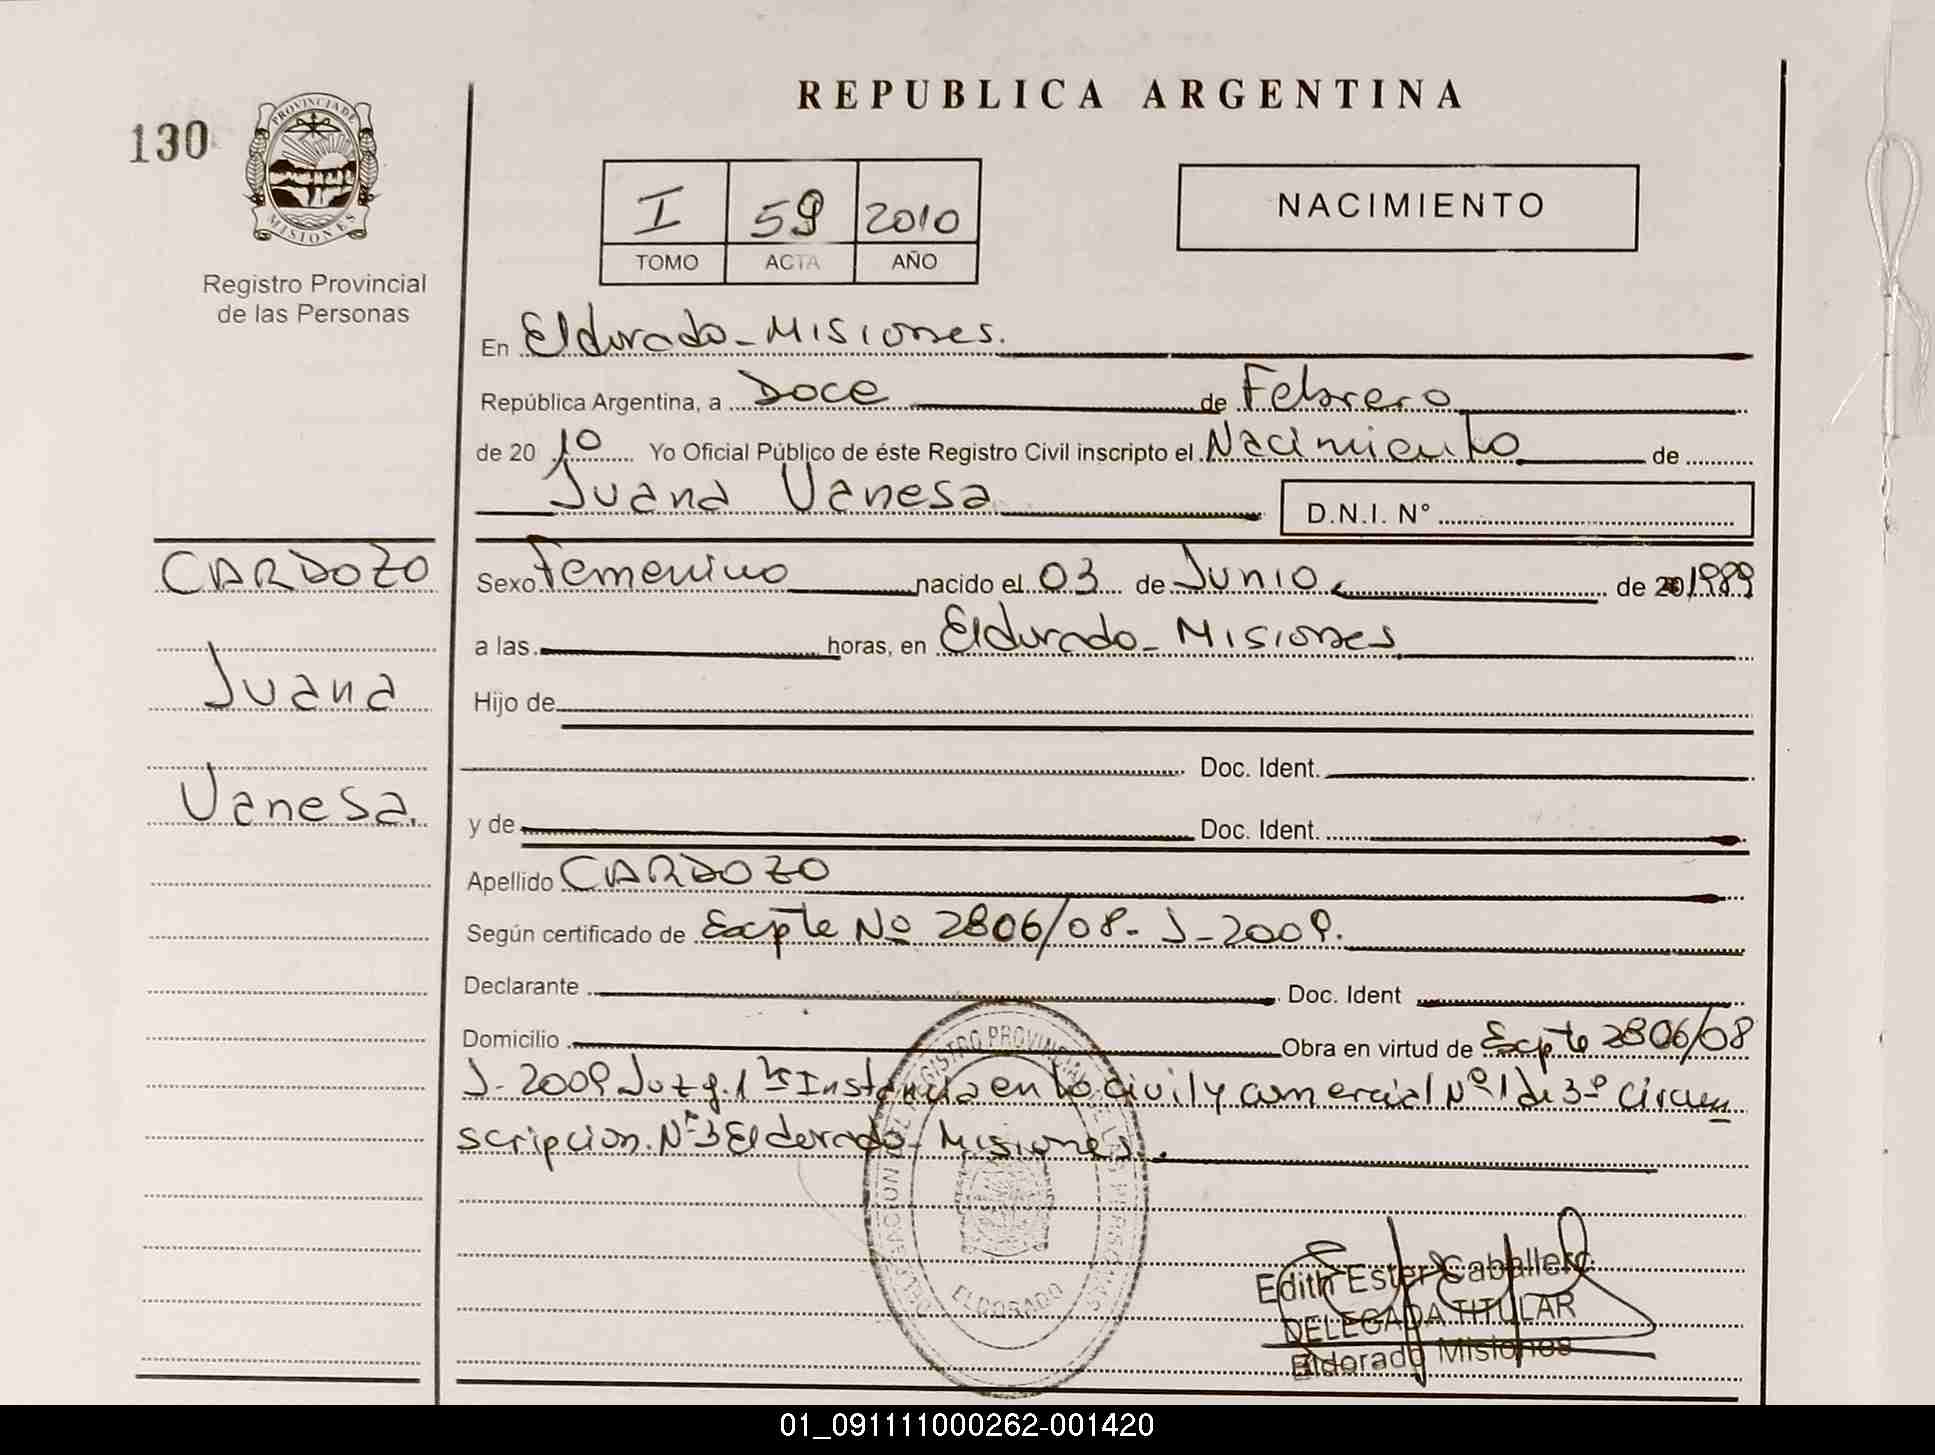 REPUBLICA ARGENTINA
130
PROVINCIA DE
MISIONES
Registro Provincial
de las Personas
I 59 2010
TOMO ACTA AÑO
NACIMIENTO
En Eldorado - Misiones.
República Argentina, a Doce de Febrero
de 20 10 Yo Oficial Público de éste Registro Civil inscripto el Nacimiento de
Juana Vanesa D.N.I. N°
CARDOZO
Juana
Vanesa.
Sexo Femenino nacido el 03 de Junio de 20 1989
a las horas, en Eldorado - Misiones
Hijo de
Doc. Ident.
y de Doc. Ident.
Apellido CARDOZO
Según certificado de Expte Nº 2806/08 - J - 2009.
Declarante Doc. Ident
Domicilio Obra en virtud de Expte 2806/08
J - 2009 Juzg. 1ra Instancia en lo civil y comercial Nº 1 de 3º Circun
scripcion. Nº 3 Eldorado - Misiones.
REGISTRO PROVINCIAL DE LAS PERSONAS
ELDORADO
Edith Ester Caballero
DELEGADA TITULAR
Eldorado Misiones
01_091111000262-001420